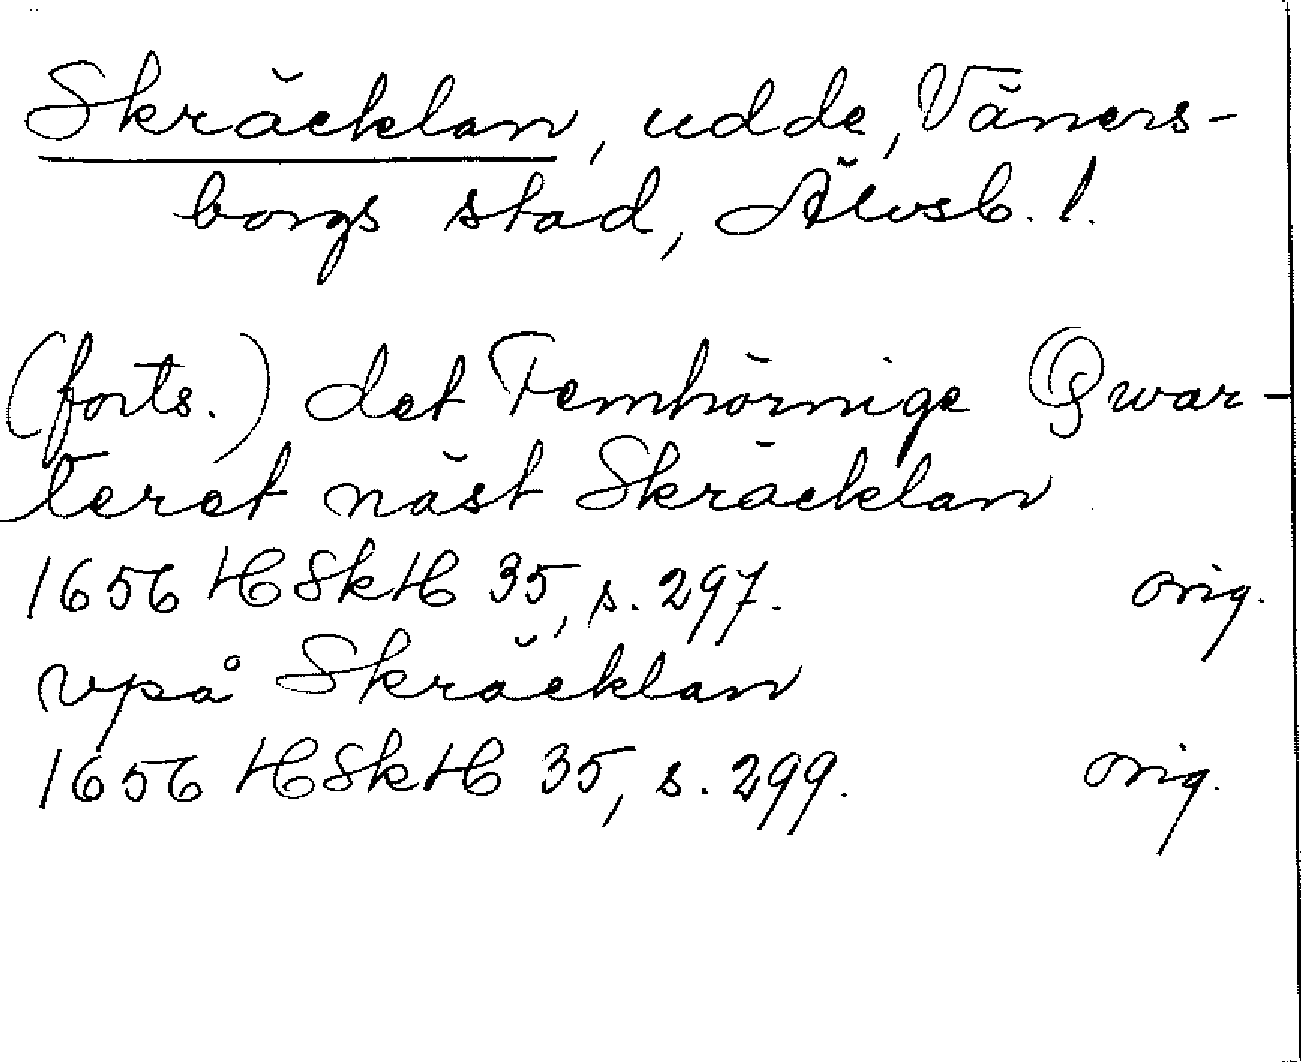 Skräcklan, udde, Väners-
borgs stad, Älvsb. l.
(forts.) det Femhörnige Qwar-
teret näst Skräcklan
1656 HSkH 35, s. 297. orig.
vpå Skräcklan
1656 HSkH 35, s. 299. orig.